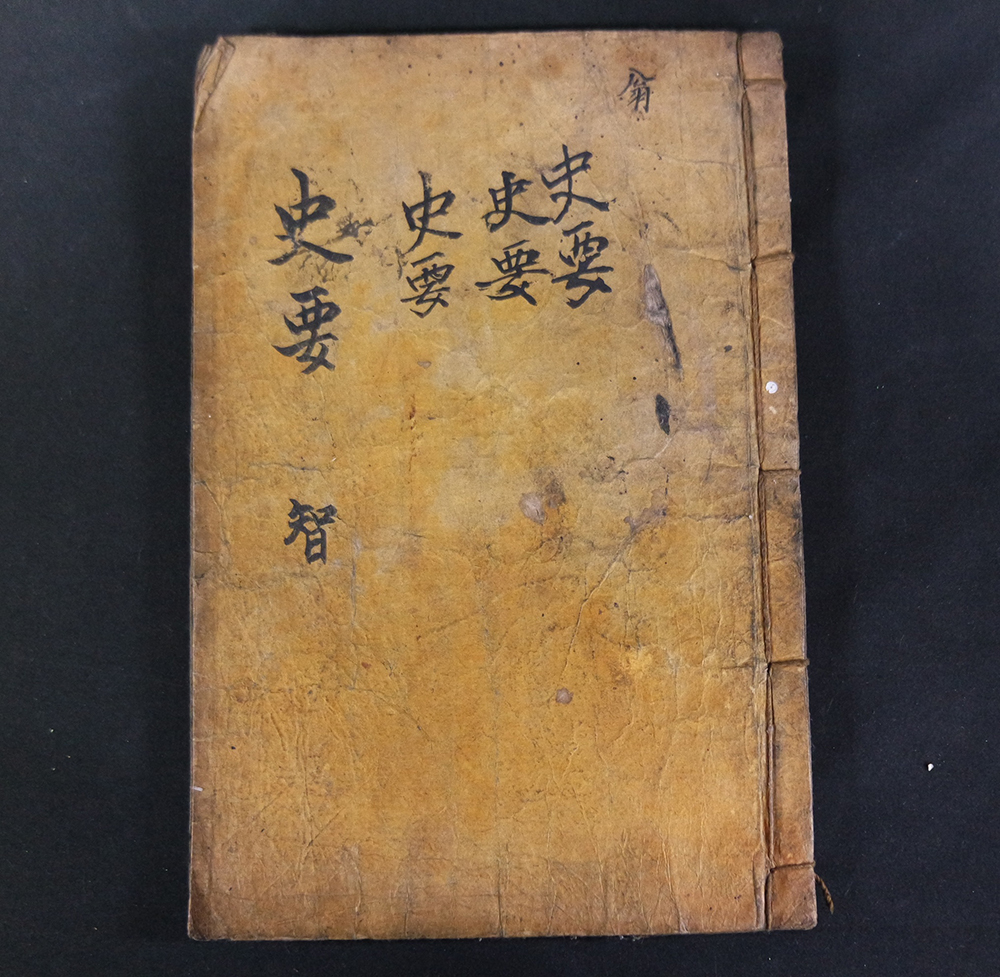 史要
史要
史要
史要 智